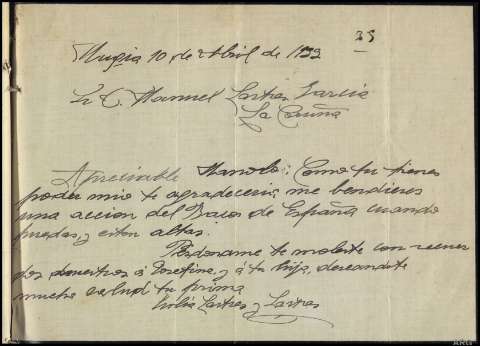 23
Mugia 10 de Abril de 1933
Sr D. Manuel Lastres Garcia
La Coruña
Apreciable Manolo: Como tu tienes
poder mio te agradeceria me bendieses
una accion del Banco de España cuando
puedas, y esten altas.
Perdoname te moleste con recuer
dos nuestros á Josefina, y á tu hija, deseandote
mucha salud tu prima
Lastres y Lastres